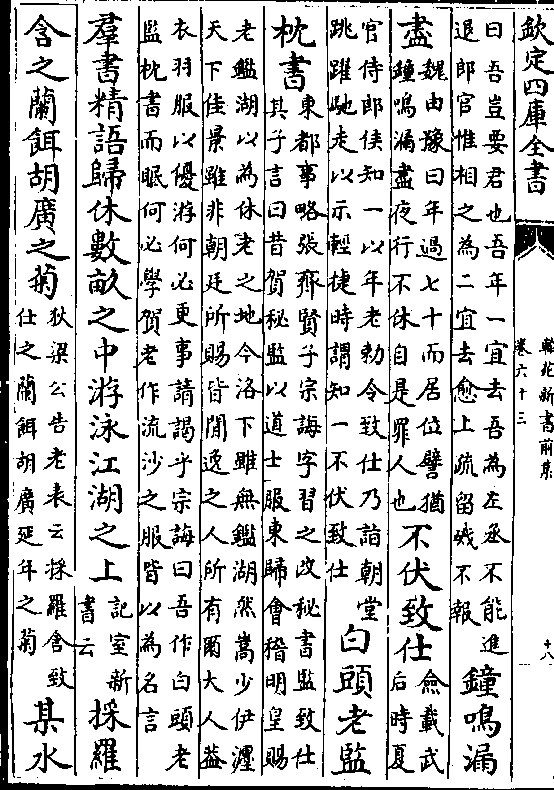 欽定四庫全書
翰苑新書前集
卷六十三
十八
曰吾豈要君也吾年一宜去吾為左丞不能進
退郎官惟相之為二宜去愈上疏留戣不報
鐘鳴漏
盡
魏由豫曰年過七十而居位譬猶
鐘鳴漏盡夜行不休自是罪人也
不伏致仕
僉載武
后時夏
官侍郎侯知一以年老勅令致仕乃詣朝堂
跳躍馳走以示輕捷時謂知一不伏致仕
白頭老監
枕書
東都事略張齊賢子宗誨字習之改秘書監致仕
其子言曰昔賀秘監以道士服東歸會稽明皇賜
老鑑湖以為休老之地今洛下雖無鑑湖然嵩少伊瀍
天下佳景雖非朝廷所賜皆閒逸之人所有爾大人盍
衣羽服以優游何必更事請謁乎宗誨曰吾作白頭老
監枕書而眠何必學賀老作流沙之服皆以為名言
羣書精語歸休數畝之中游泳江湖之上
記室新
書云
採羅
含之蘭餌胡廣之菊
狄梁公告老表云採羅含致
仕之蘭餌胡廣延年之菊
某水